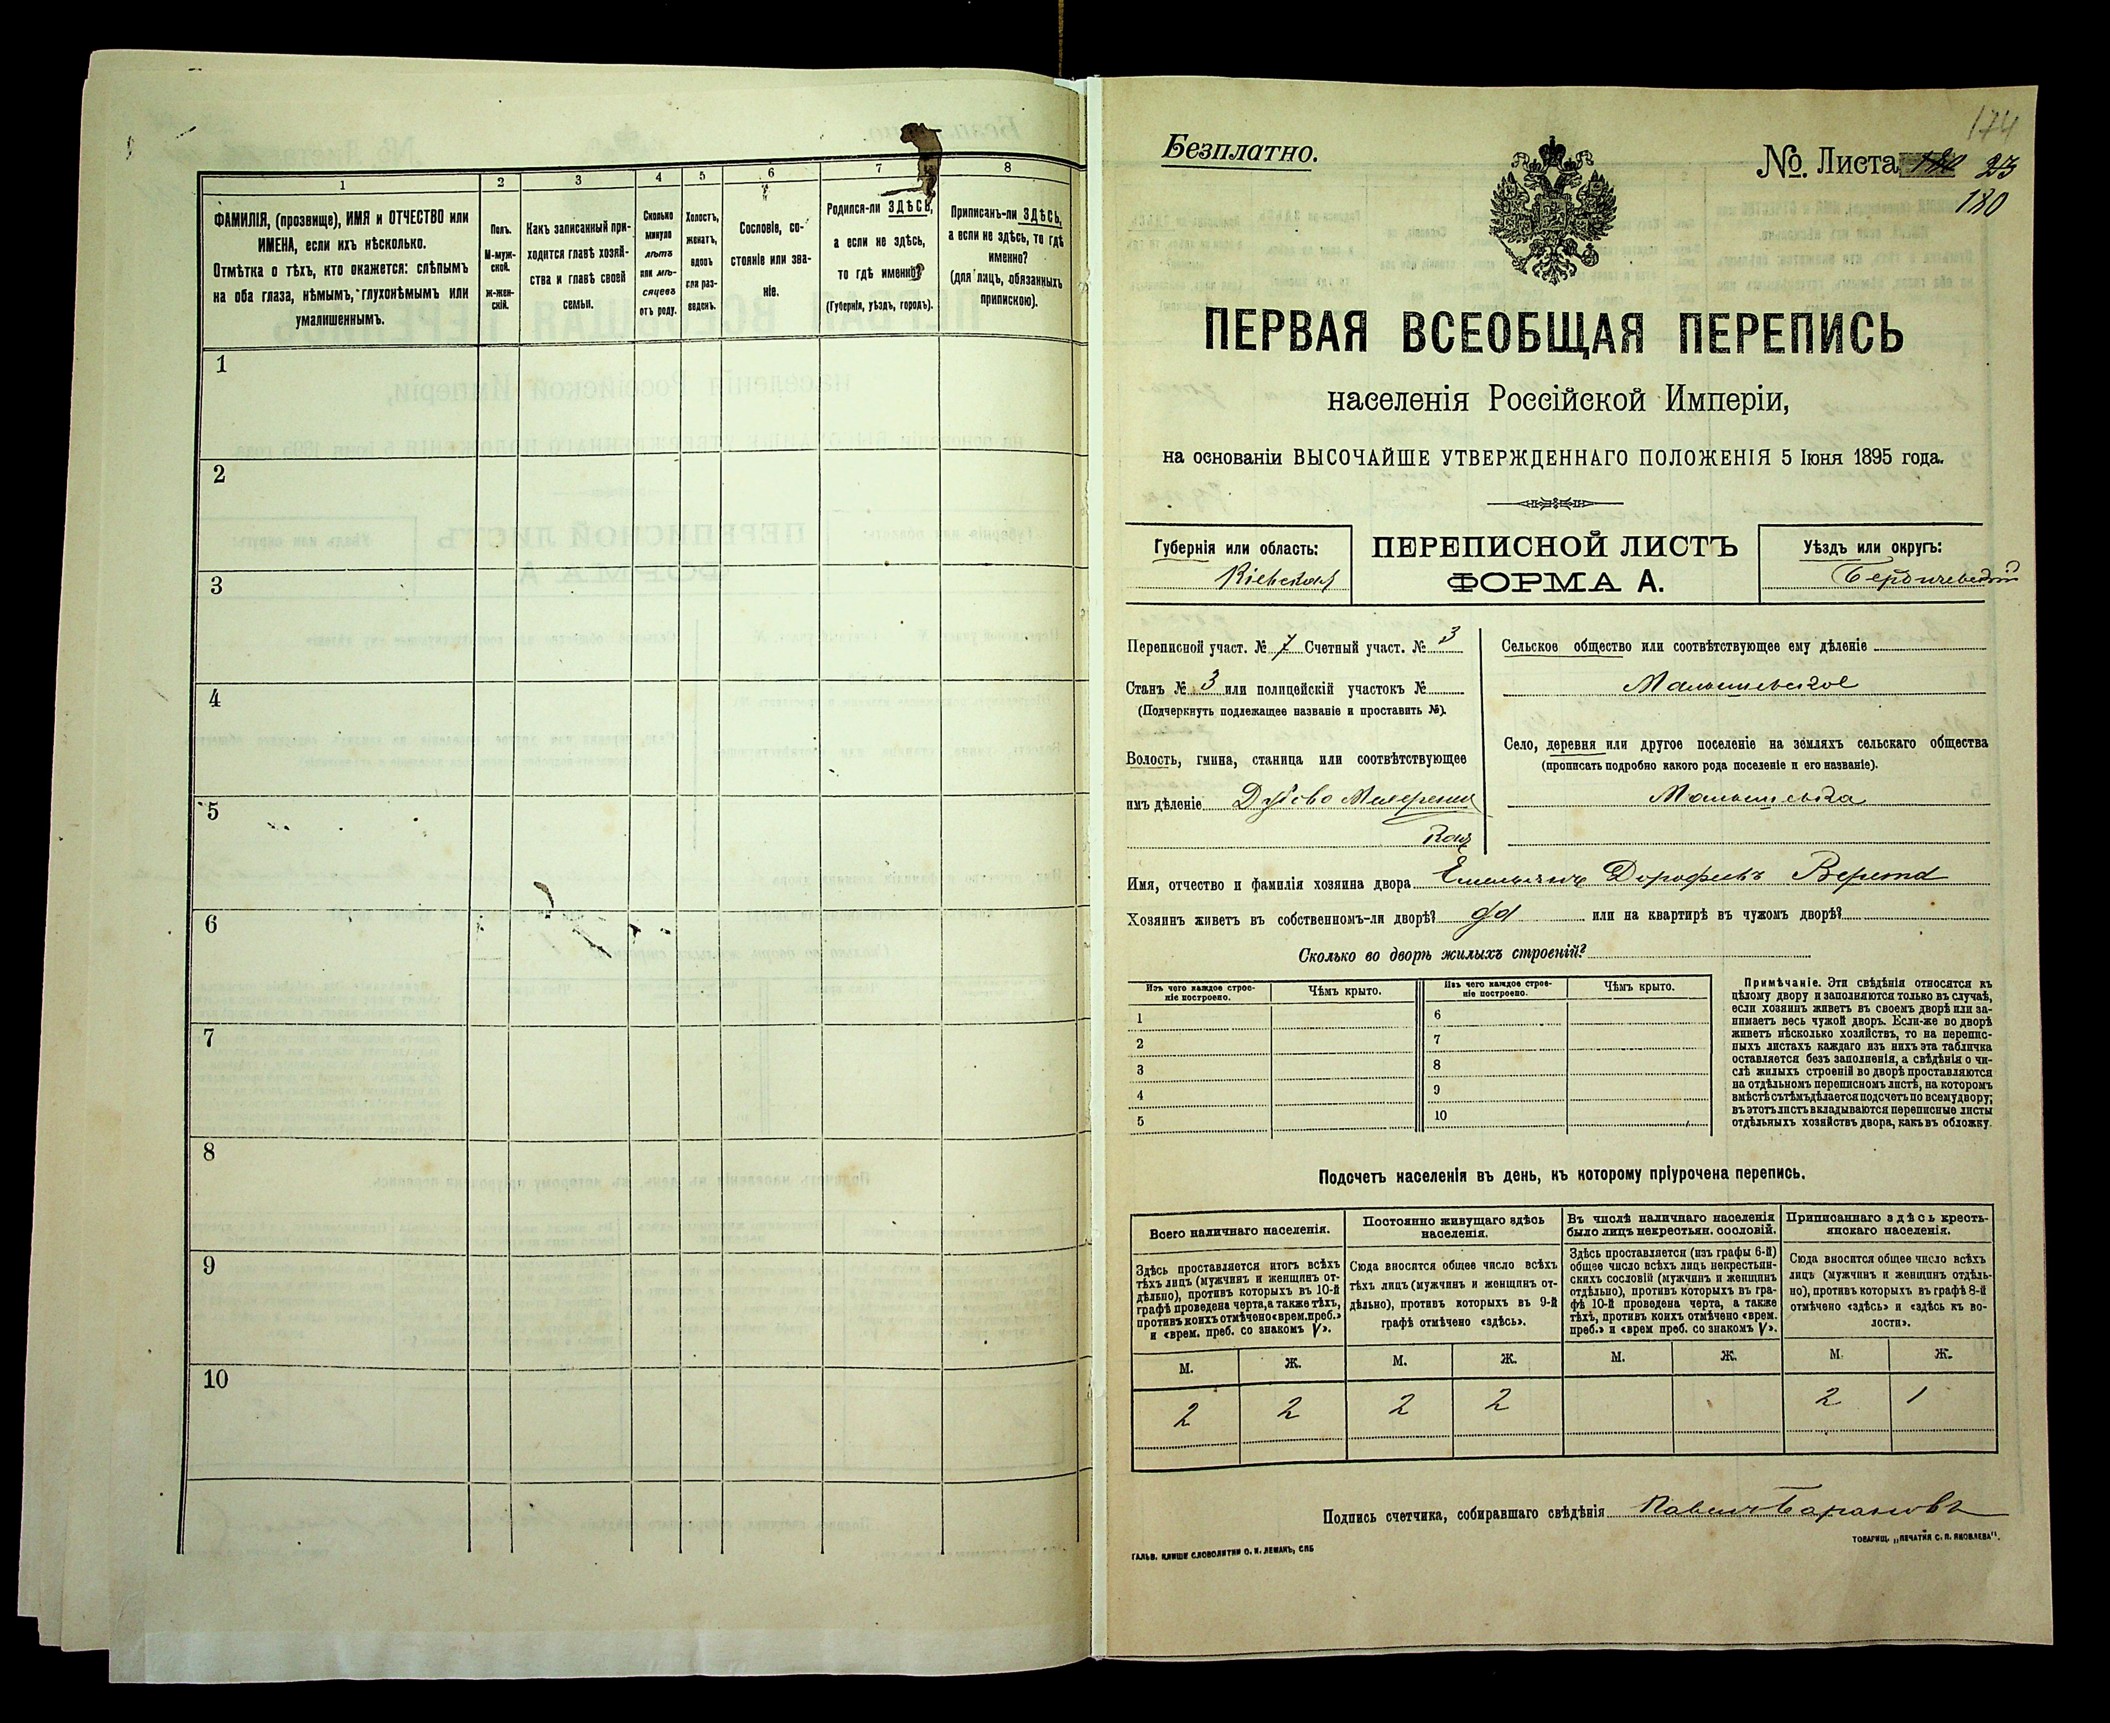 1
2
3
4
5
6
7
8
ФАМИЛІЯ, (прозвище), ИМЯ и ОТЧЕСТВО или
ИМЕНА, если ихъ нѣсколько.
Отмѣтка о тѣхъ, кто окажется: слѣпымъ
на оба глаза, нѣмымъ, глухонѣмымъ или
умалишеннымъ.
Полъ.
М-муж-
ской.
ж-жен-
скій.
Какъ записанный при-
ходится главѣ хозяй-
ства и главѣ своей
семьи.
Сколько
минуло
лѣтъ
или мѣ-
сяцевъ
отъ роду.
Холостъ,
женатъ,
вдовъ
или раз-
веденъ.
Сословіе, со-
стояніе или зва-
ніе.
Родился-ли ЗДѢСЬ,
а если не здѣсь,
то гдѣ именно?
(Губернія, уѣздъ, городъ).
Приписанъ-ли ЗДѢСЬ,
а если не здѣсь, то гдѣ
именно?
(для лицъ, обязанныхъ
припискою).
1
2
3
4
5
6
7
8
9
10
174
Безплатно.
№. Листа 23
180
ПЕРВАЯ ВСЕОБЩАЯ ПЕРЕПИСЬ
населенія Россійской Имперіи,
на основаніи ВЫСОЧАЙШЕ УТВЕРЖДЕННАГО ПОЛОЖЕНІЯ 5 Іюня 1895 года.
Губернія или область:
Кіевская
ПЕРЕПИСНОЙ ЛИСТЪ
ФОРМА А.
Уѣздъ или округъ:
Бердичевскій
Переписной участ. № 7 Счетный участ. № 3
Станъ № 3 или полицейскій участокъ №
(Подчеркнуть подлежащее названіе и проставить №).
Волость, гмина, станица или соотвѣтствующее
имъ дѣленіе Дубово Махарин
ская
Сельское общество или соотвѣтствующее ему дѣленіе
Малышевское
Село, деревня или другое поселеніе на земляхъ сельскаго общества
(прописать подробно какого рода поселеніе и его названіе).
Малышевка
Имя, отчество и фамилія хозяина двора Емельянъ Дорофеевъ
Хозяинъ живетъ въ собственномъ-ли дворѣ? да или на квартирѣ въ чужомъ дворѣ?
Сколько во дворѣ жилыхъ строеній?
Изъ чего каждое строе-
ніе построено.
Чѣмъ крыто.
Изъ чего каждое строе-
ніе построено.
Чѣмъ крыто.
1
2
3
4
5
6
7
8
9
10
Примѣчаніе. Эти свѣдѣнія относятся къ
цѣлому двору и заполняются только въ случаѣ,
если хозяинъ живетъ въ своемъ дворѣ или за-
нимаетъ весь чужой дворъ. Если-же во дворѣ
живетъ нѣсколько хозяйствъ, то на перепис-
ныхъ листахъ каждаго изъ нихъ эта табличка
оставляется безъ заполненія, а свѣдѣнія о чи-
слѣ жилыхъ строеній во дворѣ проставляются
на отдѣльномъ переписномъ листѣ, на которомъ
вмѣстѣ съ тѣмъ дѣлается подсчетъ по всему двору;
въ этотъ листъ вкладываются переписные листы
отдѣльныхъ хозяйствъ двора, какъ въ обложку.
Подсчетъ населенія въ день, къ которому пріурочена перепись.
Всего наличнаго населенія.
Здѣсь проставляется итогъ всѣхъ
тѣхъ лицъ (мужчинъ и женщинъ от-
дѣльно), противъ которыхъ въ 10-й
графѣ проведена черта, а также тѣхъ,
противъ коихъ отмѣчено «врем. преб.»
и «врем. преб. со знакомъ V».
Постоянно живущаго здѣсь
населенія.
Сюда вносится общее число всѣхъ
тѣхъ лицъ (мужчинъ и женщинъ от-
дѣльно), противъ которыхъ въ 9-й
графѣ отмѣчено «здѣсь».
Въ числѣ наличнаго населенія
было лицъ некрестьян. сословій.
Здѣсь проставляется (изъ графы 6-й)
общее число всѣхъ лицъ некрестьян-
скихъ сословій (мужчинъ и женщинъ
отдѣльно), противъ которыхъ въ гра-
фѣ 10-й проведена черта, а также
тѣхъ, противъ коихъ отмѣчено «врем.
преб.» и «врем преб. со знакомъ V».
Приписаннаго здѣсь кресть-
янскаго населенія.
Сюда вносится общее число всѣхъ
лицъ (мужчинъ и женщинъ отдѣль-
но), противъ которыхъ въ графѣ 8-й
отмѣчено «здѣсь» и «здѣсь къ во-
лости».
М. Ж. М. Ж. М. Ж. М. Ж.
2 2 2 2 2 1
Подпись счетчика, собиравшаго свѣдѣнія Павелъ Барановъ
ГАЛЬВ. КЛИШЕ СЛОВОЛИТНИ О. И. ЛЕМАНЪ, СПБ
ТОВАРИЩ. „ПЕЧАТНЯ С. П. ЯКОВЛЕВА".